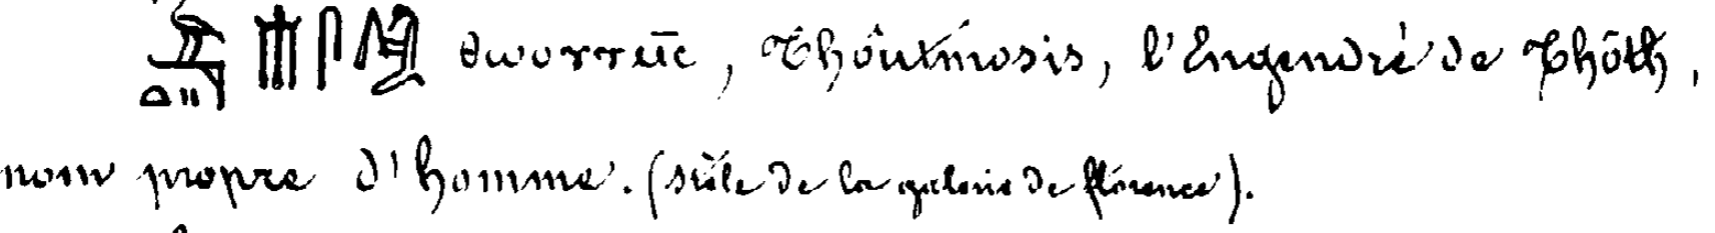 ⲑⲱⲟⲩⲧⲙ̄ⲥ, Thôutmosis, l'Engendré de Thôth,
nom propre d'homme. (stèle de la galerie de florence).